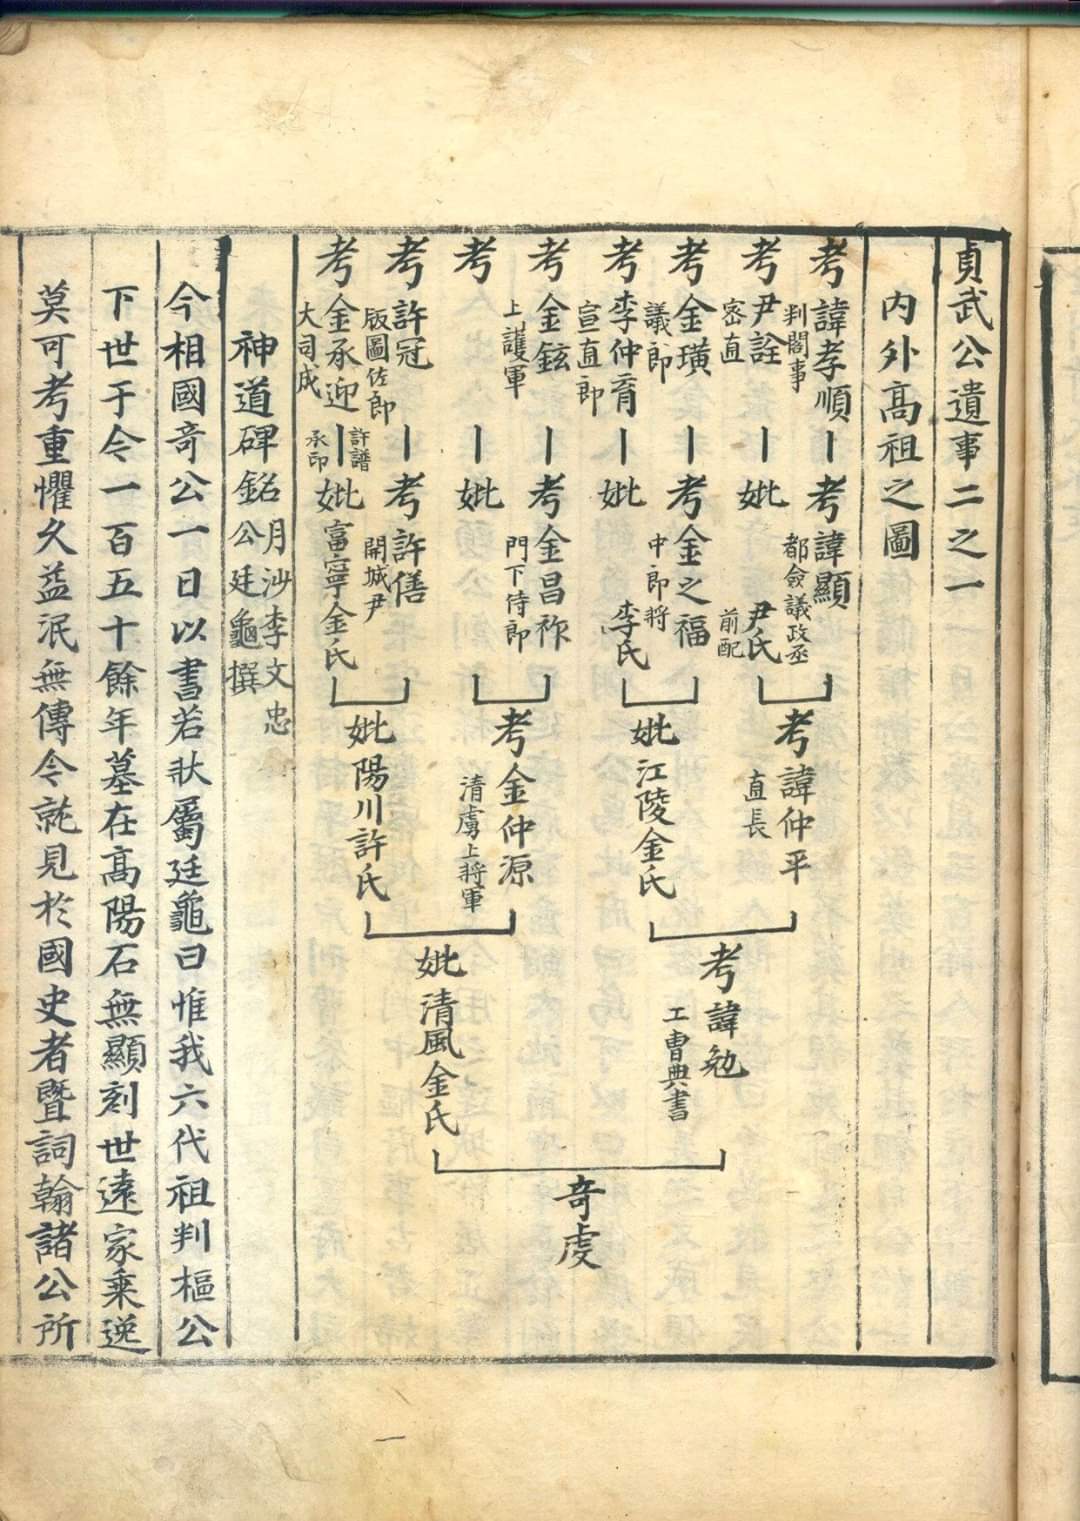 貞武公遺事二之一
内外高祖之圖
考諱孝順
判閣事
考諱顯
都僉議政丞
考尹詮
密直
妣尹氏
前配
考諱仲平
直長
考金璜
議郎
考金之福
中郎將
考李仲育
宣直郎
妣李氏
妣江陵金氏
考諱勉
工曹典書
考金鉉
上護軍
考金昌祚
門下侍郎
考
妣
考金仲源
清虜上將軍
考許冠
版圖佐郎
考許僐
開城尹
考金承迎
大司成
許譜
承印
妣富寧金氏
妣陽川許氏
妣清風金氏
奇虔
神道碑銘
月沙李文忠
公廷龜撰
今相國奇公一日以書若狀屬廷龜曰惟我六代祖判樞公
下世于今一百五十餘年墓在高陽石無顯刻世遠家乗逸
莫可考重懼久益泯無傳今就見於國史者暨詞翰諸公所